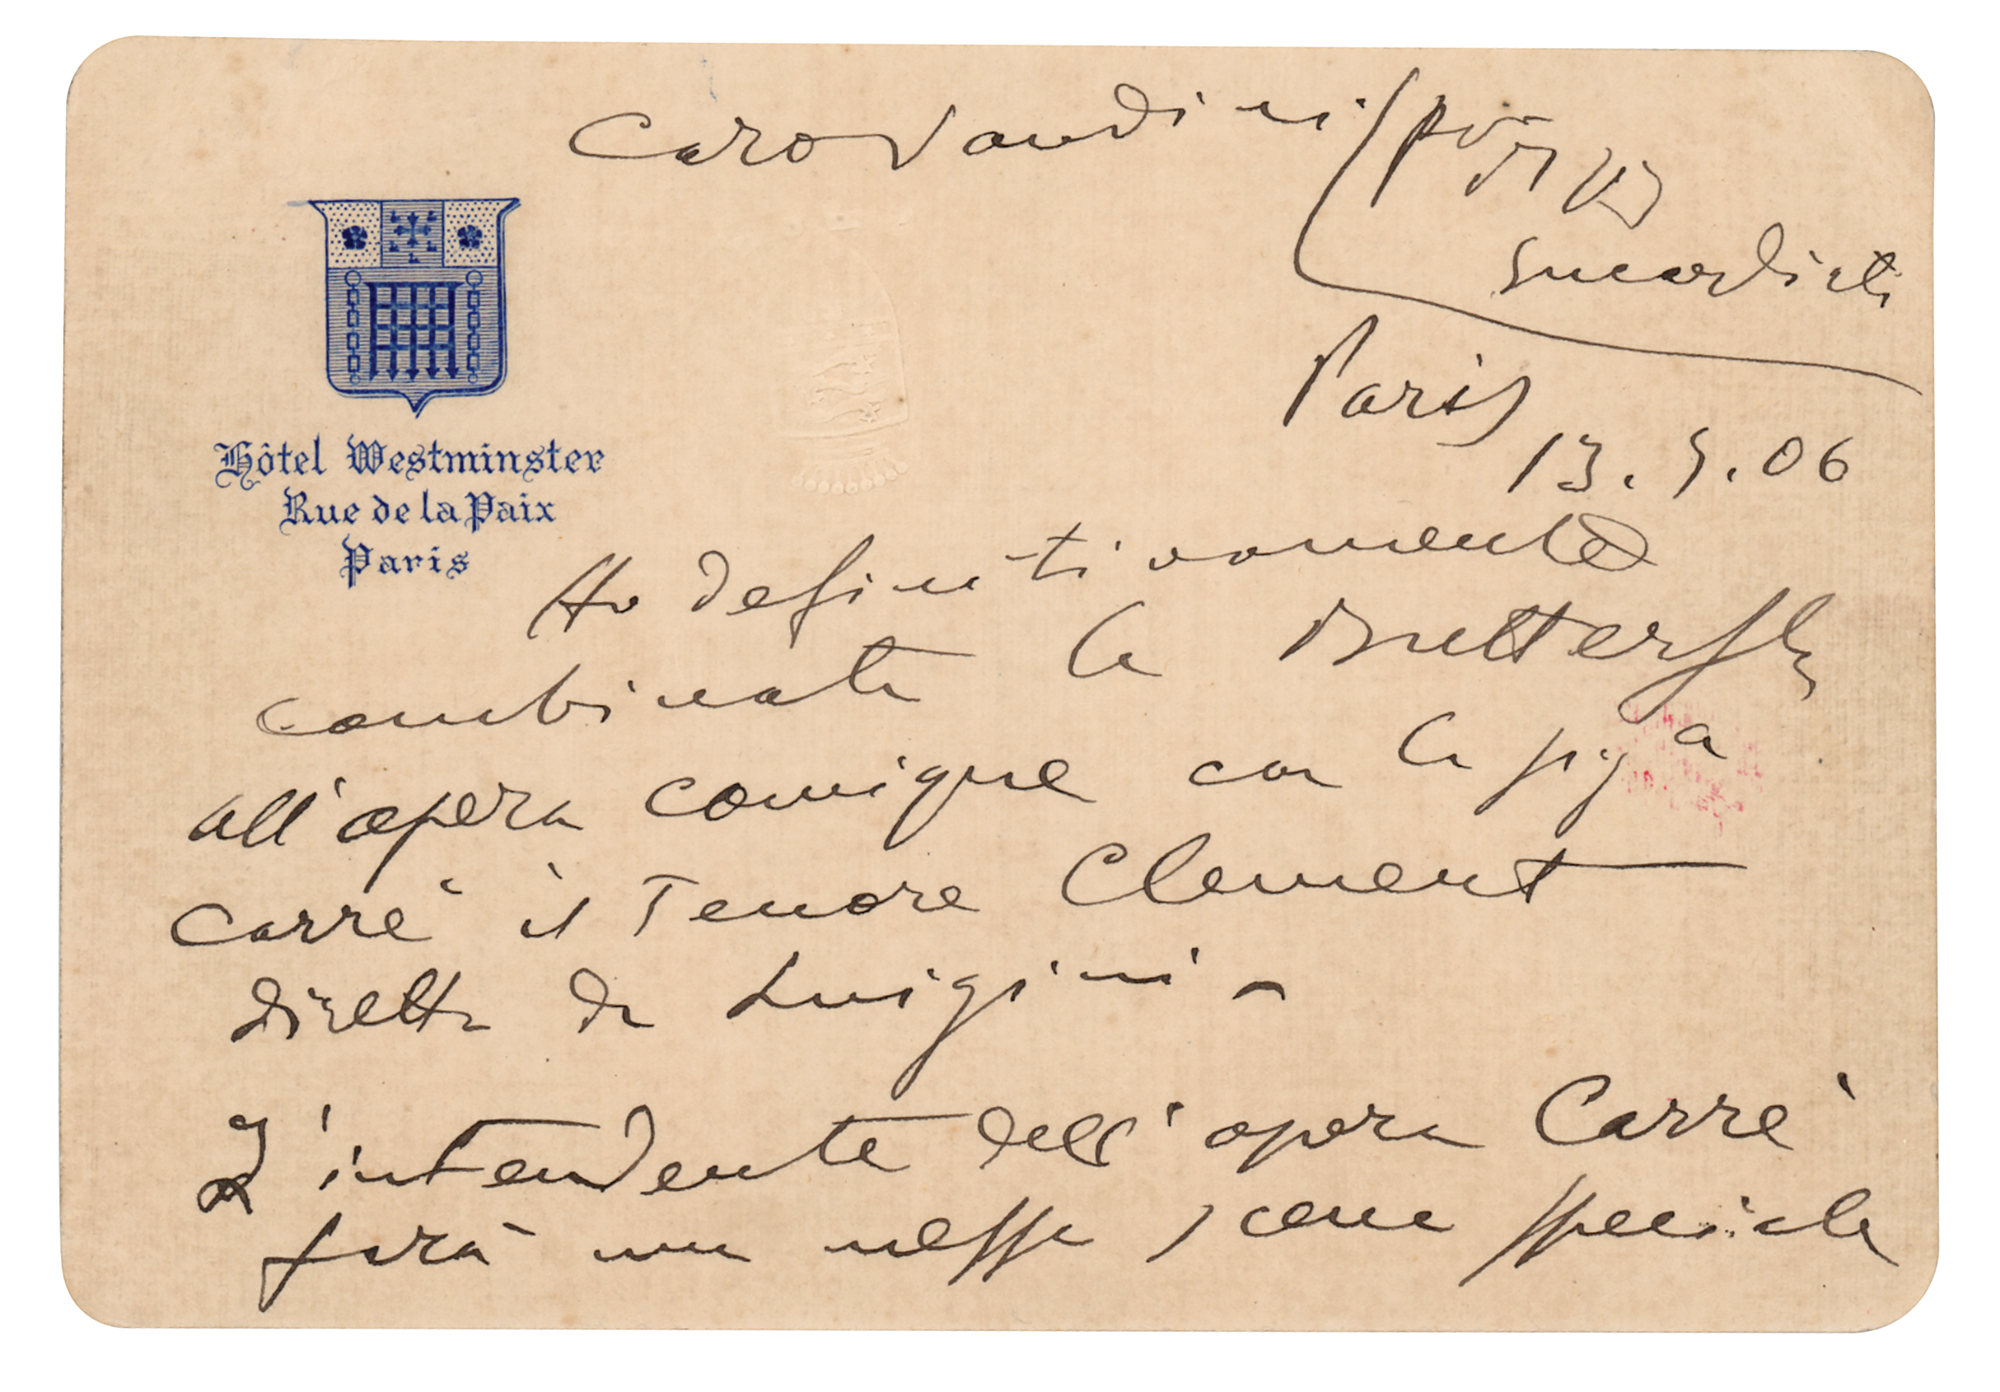 Caro Vandini
Hôtel Westminster
Rue de la Paix
Paris
Paris
13.5.06
Ho definitivamente
combinata la Butterfly
all'opera comique con la sig.a
Carrè il Tenore Clement
diretta da Luigini -
L'intendente dell'opera Carrè
farà una messa scena speciale